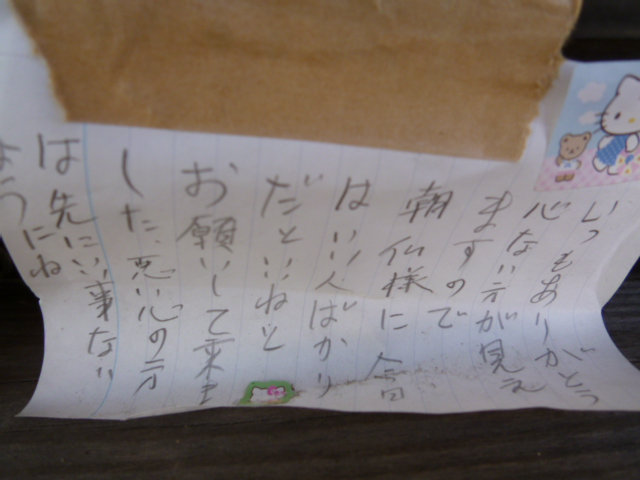 いつもありがとう
心ない方が見え
ますので
朝仏様に今回
はいい人ばかり
だといいねと
お願いして来ま
した、悪い心の方
は先にいい事ない
ようにね